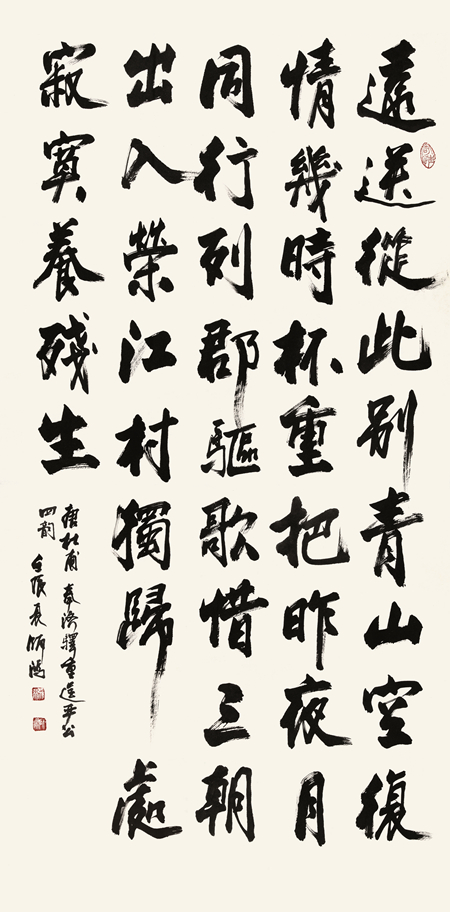 遠送從此別青山空復
情幾時杯重把昨夜月
同行列郡驅歌惜三朝
出入榮江村獨歸處
寂寞養殘生
唐杜甫奉濟驛重送严公
四韻